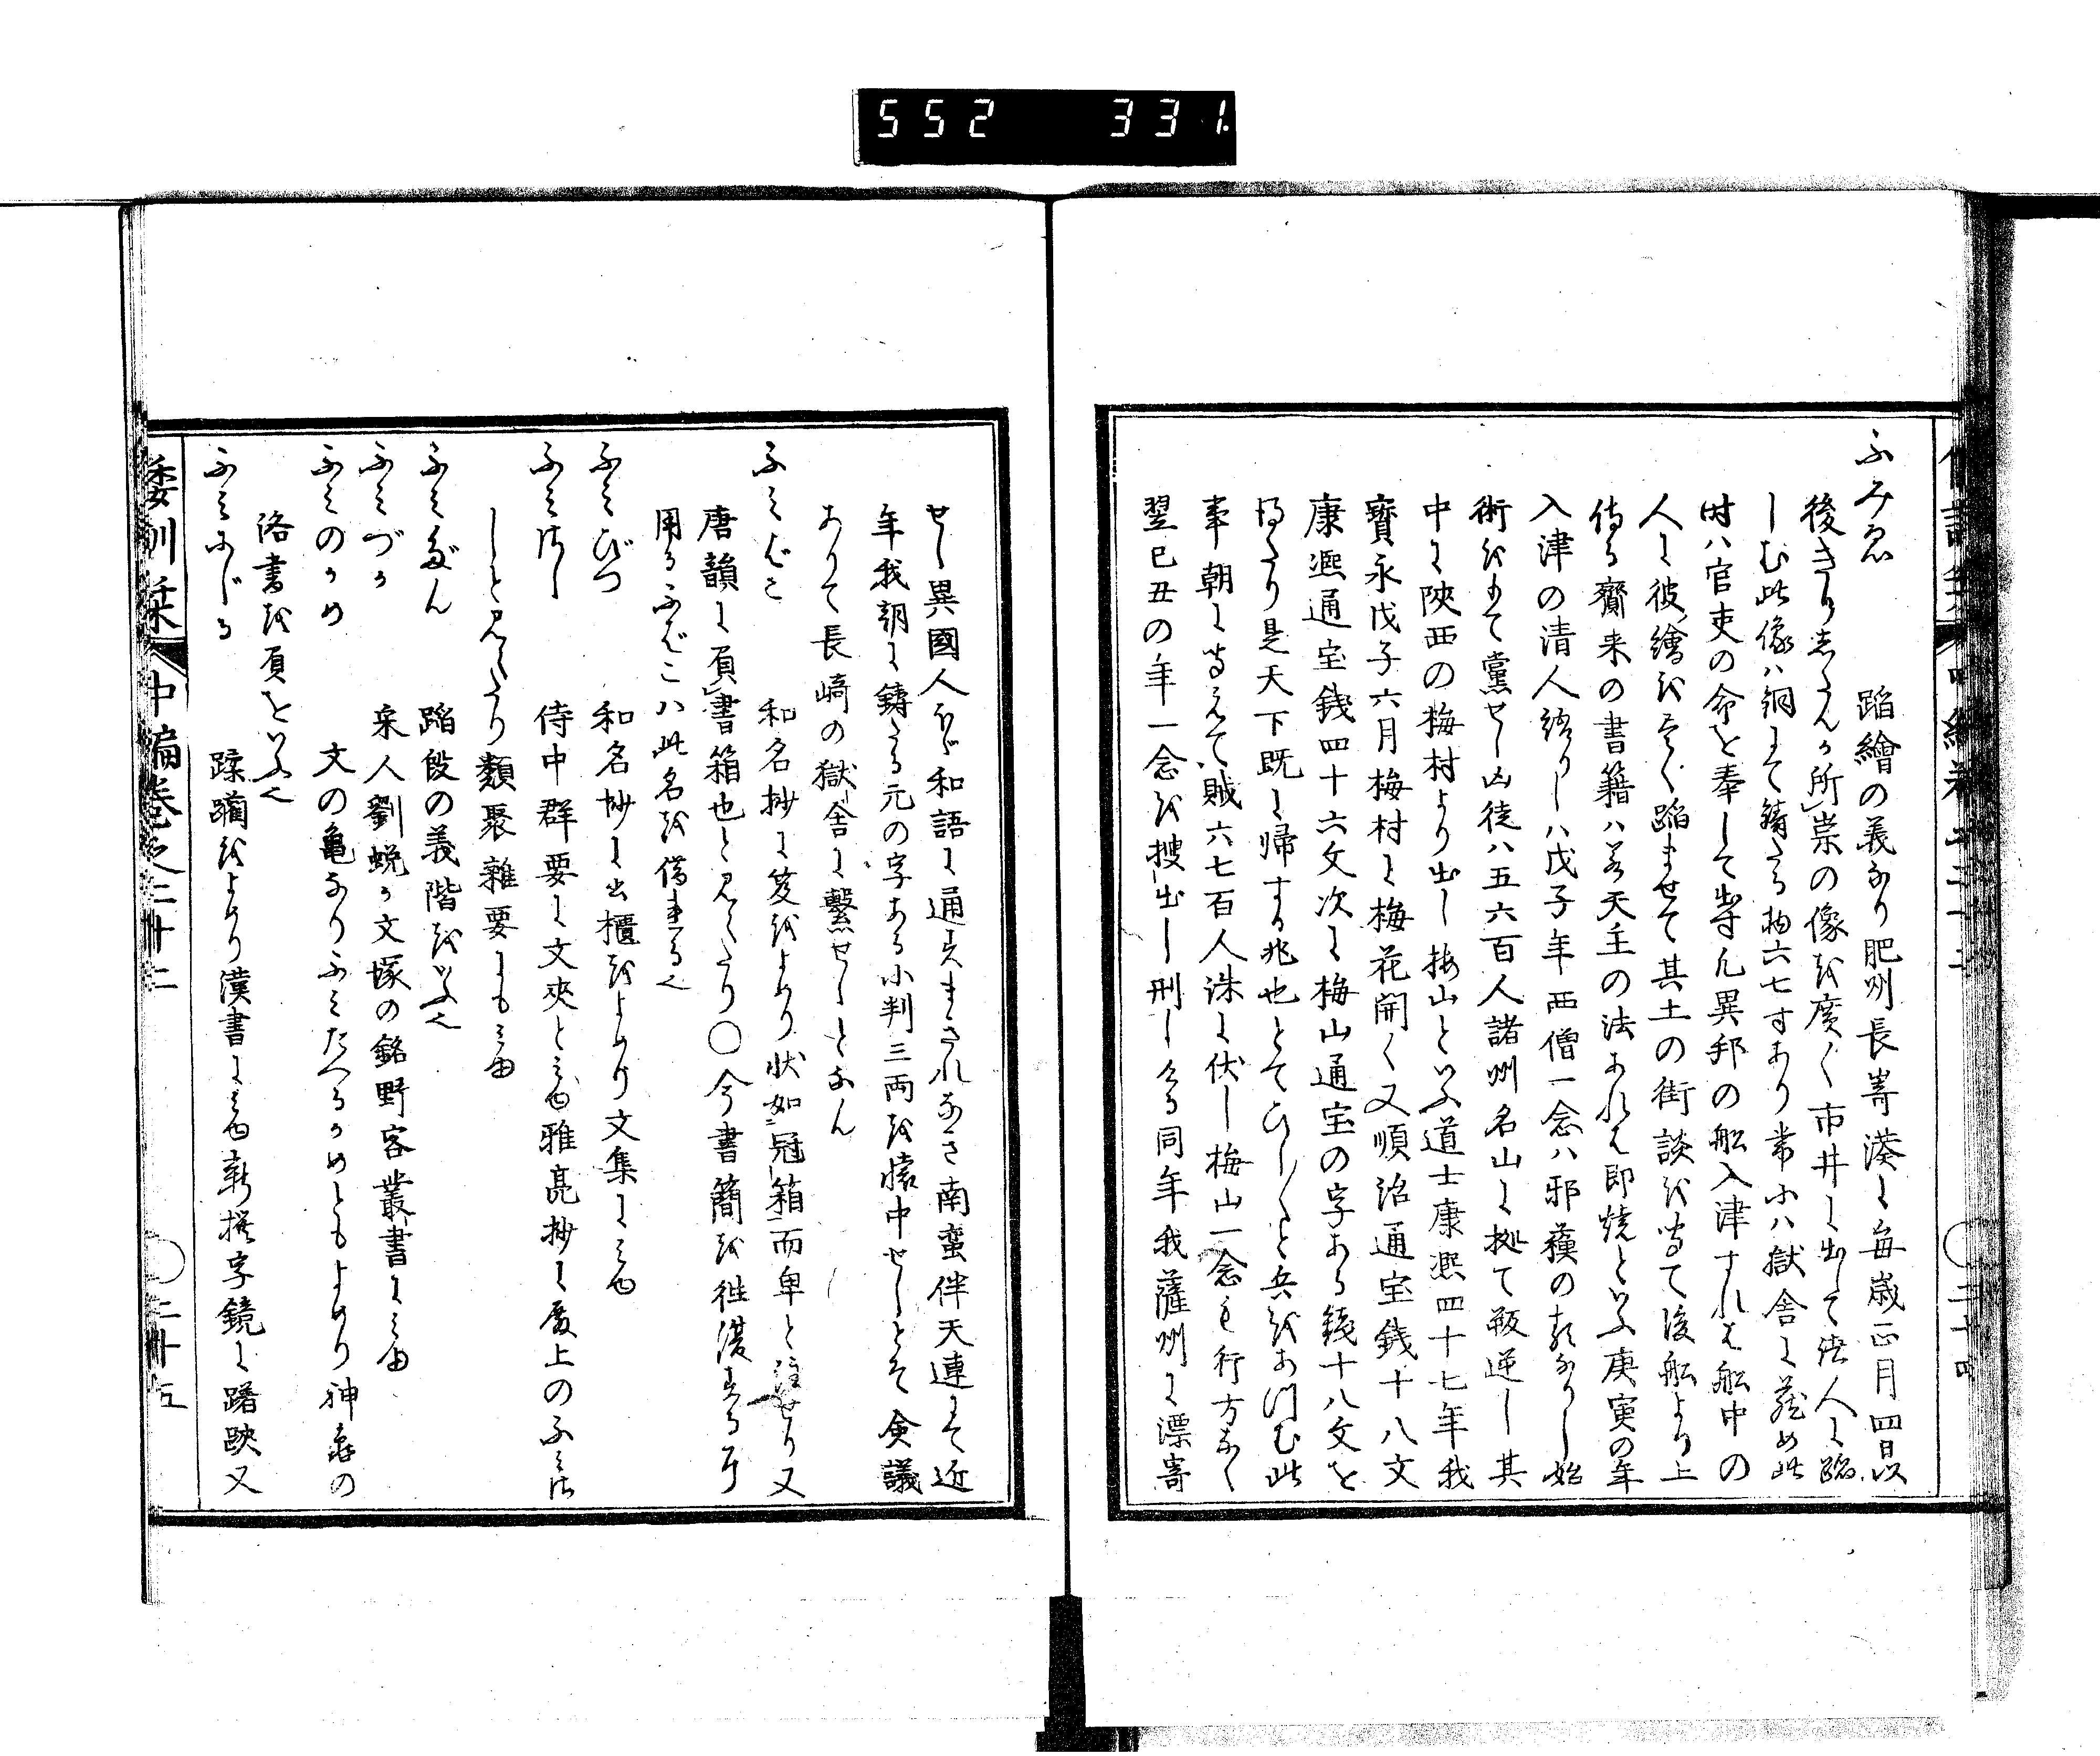 552 331.
ふみゑ 蹈繪の義なり肥州長崎湊に毎歳正月四日以
後きりしたんか所崇の像を廣く市井に出して諸人に蹈
しむ此像ハ銅にて鑄たる物六七寸あり常ハ獄舎に蔵め此
時ハ官吏の命を奉して出す凡異邦の舩入津すれは舩中の
人に彼繪を尽く蹈ませて其土の街談を問て後舩より上
持る齎来の書籍ハ若天主の法あれは即焼といふ庚寅の年
入津の清人語りしハ戊子年西僧一念ハ邪蘓の類なりし始
術をもて黨せし凶徒ハ五六百人諸州名山に拠て叛逆し其
中に陝西の梅村より出し梅山といふ道士康熈四十七年我
寳永戊子六月梅村に梅花開く又順治通宝銭十八文
康熈通宝銭四十六文次に梅山通宝の字ある銭十八文を
得たり是天下既に帰する兆也とてひし〳〵と兵をあつむ此
事朝に聞えて賊六七百人誅に伏し梅山一念も行方なく
翌己丑の年一念を捜出し刑しける同年我薩州に漂寄
せし異國人ハ和語に通しまきれなき南蛮伴天連にて近
年我朝に鋳たる元の字ある小判三両を懐中せしとそ僉議
ありて長崎の獄舎に繋せしとなん
ふみばこ 和名抄に笈をよめり状如冠箱而卑と注せり又
唐韻に負書箱也と見えたり○今書簡を徃復する所
用るふばこハ此名を借れる也
ふみびつ 和名抄に出櫃をよめり文集に見ゆ
ふみはし 侍中群要に文夾と見ゆ雅亮抄に殿上のふみは
しと見えたり類聚雜要にも見ゆ
ふみだん 蹈段の義階をいふ也
ふみづか 宋人劉蛻か文塚の銘野客叢書に見ゆ
ふみのかめ 文の亀なりふみたへるかめともよめり神亀の
洛書を負をいふ也
ふみにじる 蹂躪をよめり漢書に見ゆ新撰字鏡に躇䟦又
倭訓栞 中編巻之二十二 ○二十五